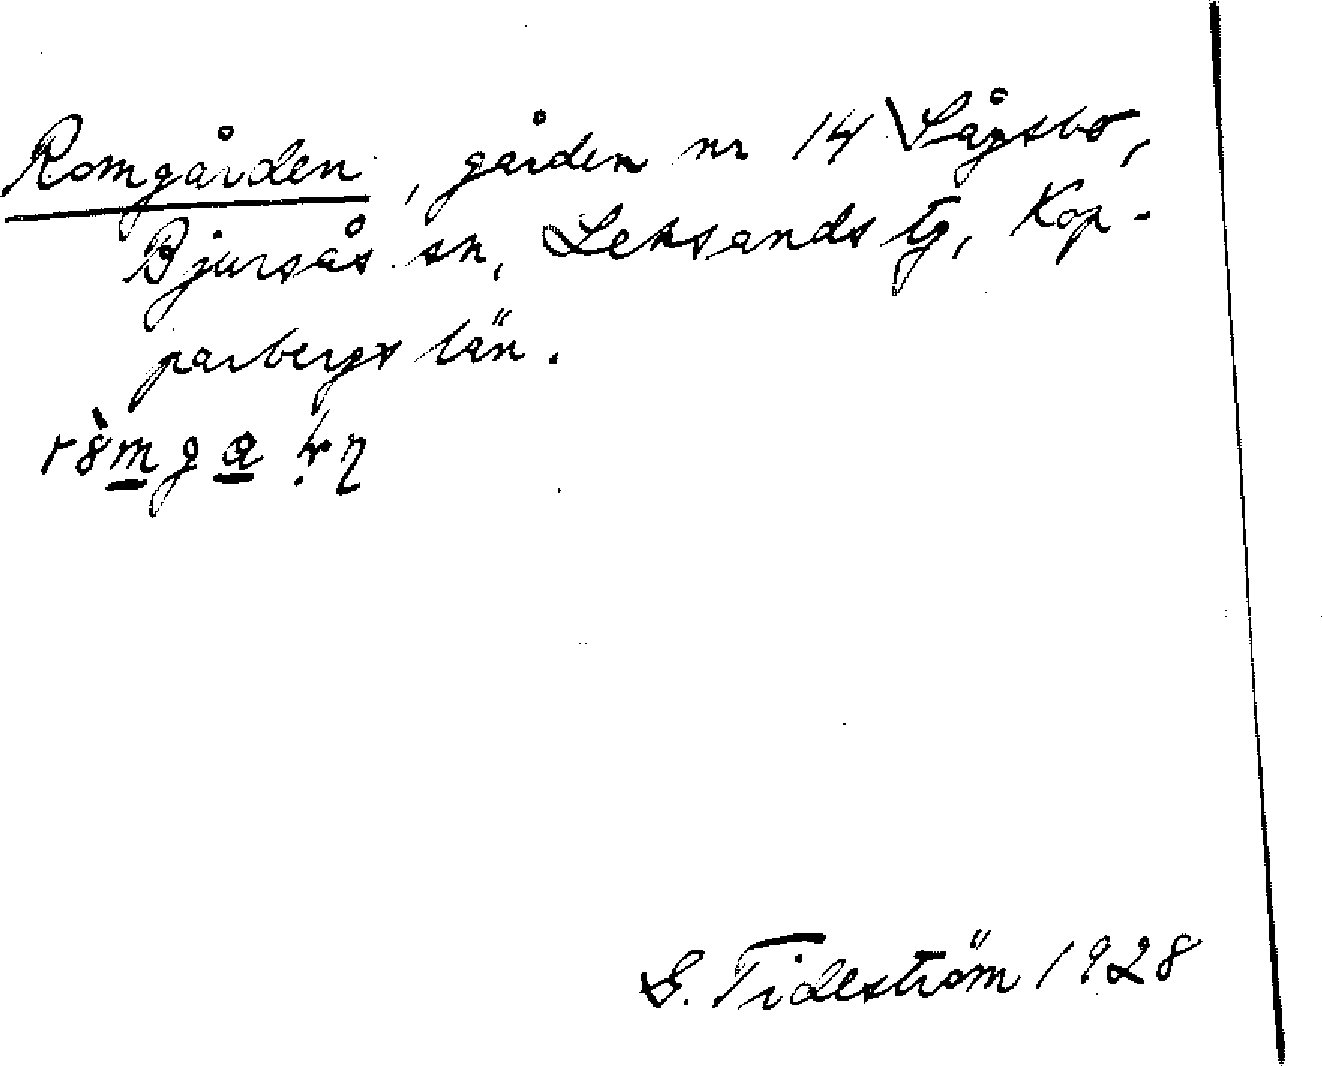 Romgården, gården nr 14 \ Lågsbo,
Bjursås sn, Leksands tg, Kop-
parbergs län.
G. Tideström 1928